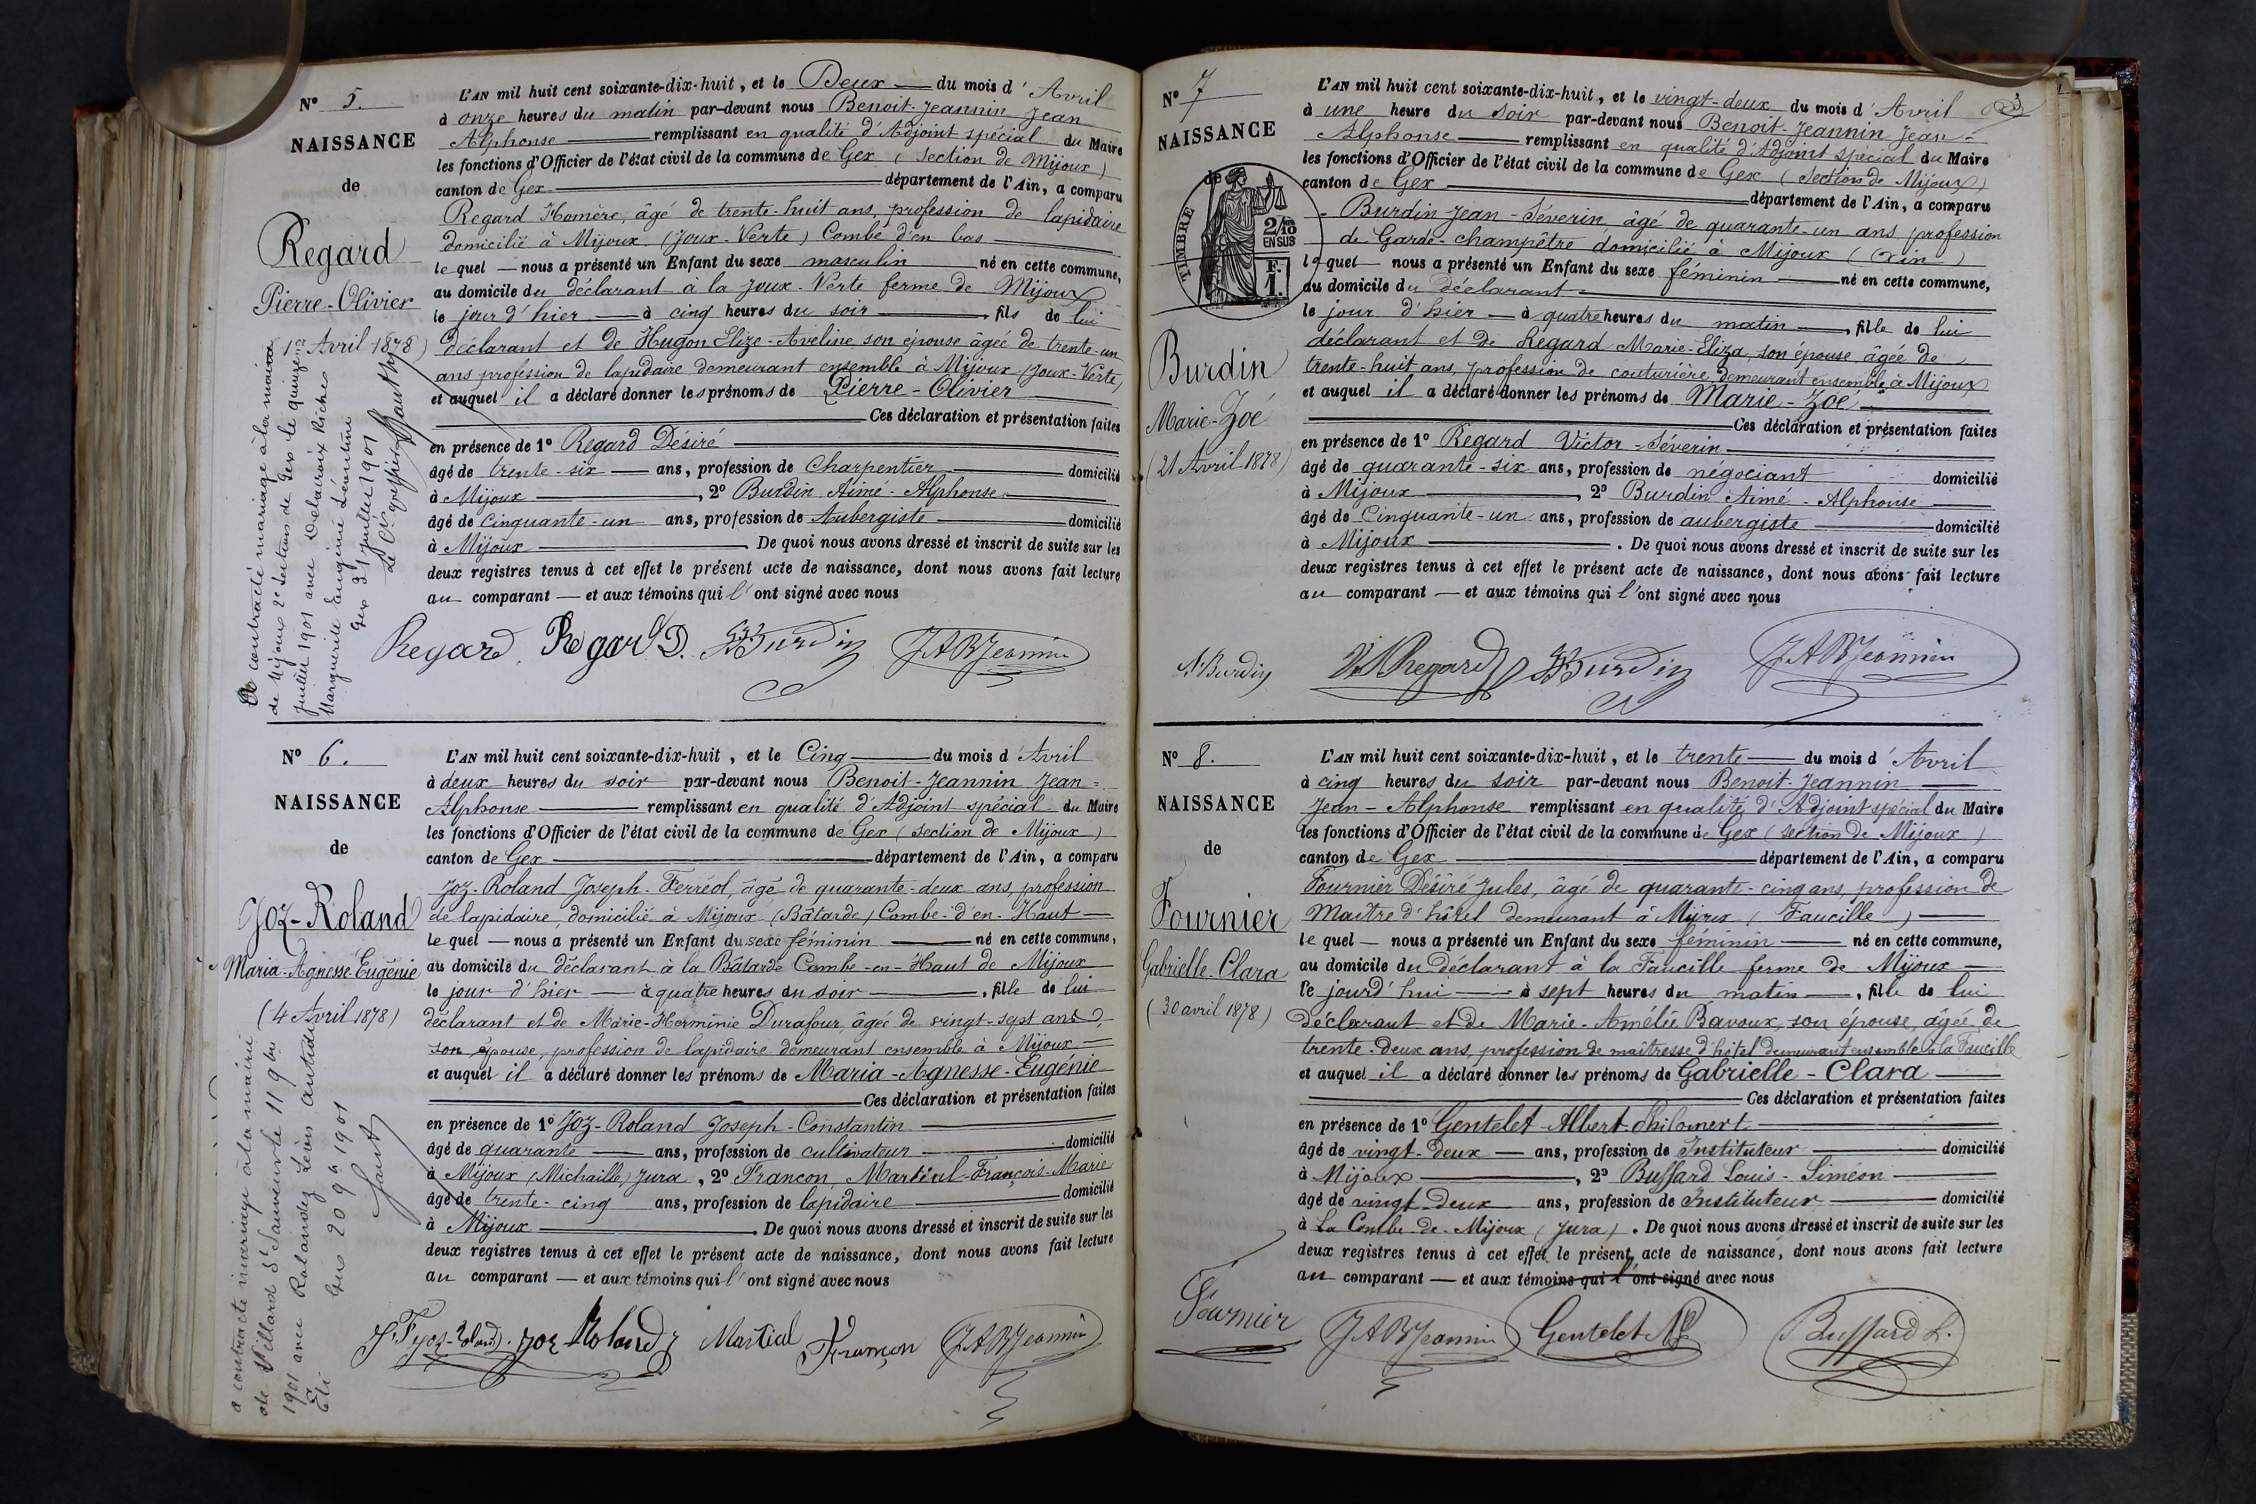 N° 5.
NAISSANCE
de
Regard
Pierre-Olivier
1er Avril 1878)
A contracté mariage à la mairie
de Mijoux 2e section de Gex le quinze
juillet 1901 avec Delacroix Riche
Marguerite Eugénie Léontine
Gex 21 juillet 1901
Le Cis greffier
L'AN mil huit cent soixante-dix-huit, et le Deux du mois d'Avril
à onze heures du matin par-devant nous Benoit-Jeannin Jean
Alphonse remplissant en qualité d'Adjoint spécial du Maire
les fonctions d'Officier de l'état civil de la commune de Gex (section de Mijoux)
canton de Gex département de l'Ain, a comparu
Regard Homère, âgé de trente-huit ans, profession de lapidaire
domicilié à Mijoux (Joux-Verte) Combe d'en bas
le quel nous a présenté un Enfant du sexe masculin né en cette commune,
au domicile du déclarant à la Joux-Verte ferme de Mijoux
le jour d'hier à cinq heures du soir, fils de lui
déclarant et de Hugon Elize-Aveline son épouse âgée de trente-un
ans profession de lapidaire demeurant ensemble à Mijoux (Joux-Verte)
et auquel il a déclaré donner les prénoms de Pierre-Olivier
Ces déclaration et présentation faites
en présence de 1° Regard Désiré
âgé de trente-six ans, profession de Charpentier domicilié
à Mijoux, 2° Burdin Aimé-Alphonse
âgé de cinquante-un ans, profession de Aubergiste domicilié
à Mijoux. De quoi nous avons dressé et inscrit de suite sur les
deux registres tenus à cet effet le présent acte de naissance, dont nous avons fait lecture
au comparant et aux témoins qui l'ont signé avec nous
Regard Regard D. Burdin JABJeannin
N° 6.
NAISSANCE
de
Joz-Roland
Maria-Agnesse-Eugénie
(4 Avril 1878)
a contracté mariage à la mairie
de Villard St Sauveur le 11 9bre
1901 avec Rolandez Léon Aristide
Eli
Gex 20 9bre 1901
L'AN mil huit cent soixante-dix-huit, et le Cinq du mois d'Avril
à deux heures du soir par-devant nous Benoit-Jeannin Jean-
Alphonse remplissant en qualité d'Adjoint spécial du Maire
les fonctions d'Officier de l'état civil de la commune de Gex (section de Mijoux)
canton de Gex département de l'Ain, a comparu
Joz-Roland Joseph-Ferréol, âgé de quarante-deux ans, profession
de lapidaire domicilié à Mijoux (Bâtarde) Combe-d'en-Haut
le quel nous a présenté un Enfant du sexe féminin né en cette commune,
au domicile du déclarant à la Bâtarde Combe-en-Haut de Mijoux
le jour d'hier à quatre heures du soir, fille de lui
déclarant et de Marie-Herminie Durafour âgée de vingt-sept ans
son épouse, profession de lapidaire demeurant ensemble à Mijoux
et auquel il a déclaré donner les prénoms de Maria-Agnesse-Eugénie
Ces déclaration et présentation faites
en présence de 1° Joz-Roland Joseph-Constantin
âgé de quarante ans, profession de cultivateur domicilié
à Mijoux (Michaille) Jura, 2° Francon Martial-François-Marie
âgé de trente-cinq ans, profession de lapidaire domicilié
à Mijoux. De quoi nous avons dressé et inscrit de suite sur les
deux registres tenus à cet effet le présent acte de naissance, dont nous avons fait lecture
au comparant et aux témoins qui l'ont signé avec nous
J.F Joz-Roland. Joz Roland Martial Francon JABJeannin
N° 7
NAISSANCE
de
TIMBRE
2/10
EN SUS
F.
1.
Burdin
Marie-Zoé
(21 Avril 1878)
L'AN mil huit cent soixante-dix-huit, et le vingt-deux du mois d'Avril
à une heure du soir par-devant nous Benoit-Jeannin Jean-
Alphonse remplissant en qualité d'Adjoint spécial du Maire
les fonctions d'Officier de l'état civil de la commune de Gex (section de Mijoux)
canton de Gex département de l'Ain, a comparu
Burdin Jean-Séverin âgé de quarante-un ans profession
de Garde-champêtre domicilié à Mijoux (Ain)
le quel nous a présenté un Enfant du sexe féminin né en cette commune,
au domicile du déclarant
le jour d'hier à quatre heures du matin, fille de lui
déclarant et de Regard Marie-Eliza, son épouse âgée de
trente-huit ans, profession de couturière, demeurant ensemble à Mijoux
et auquel il a déclaré donner les prénoms de Marie-Zoé
Ces déclaration et présentation faites
en présence de 1° Regard Victor-Séverin
âgé de quarante-six ans, profession de négociant domicilié
à Mijoux, 2° Burdin Aimé-Alphonse
âgé de Cinquante-un ans, profession de aubergiste domicilié
à Mijoux. De quoi nous avons dressé et inscrit de suite sur les
deux registres tenus à cet effet le présent acte de naissance, dont nous avons fait lecture
au comparant et aux témoins qui l'ont signé avec nous
Burdin V. Regard Burdin JABJeannin
N° 8.
NAISSANCE
de
Fournier
Gabrielle-Clara
(30 avril 1878)
L'AN mil huit cent soixante-dix-huit, et le trente du mois d'Avril
à cinq heures du soir par-devant nous Benoit-Jeannin
Jean-Alphonse remplissant en qualité d'Adjoint spécial du Maire
les fonctions d'Officier de l'état civil de la commune de Gex (section de Mijoux)
canton de Gex département de l'Ain, a comparu
Fournier Désiré Jules, âgé de quarante-cinq ans, profession de
Maître d'hôtel demeurant à Mijoux (Faucille)
le quel nous a présenté un Enfant du sexe féminin né en cette commune,
au domicile du déclarant à la Faucille ferme de Mijoux
le jourd'hui à sept heures du matin, fille de lui
déclarant et de Marie-Amélie Bavoux, son épouse, âgée de
trente-deux ans, profession de maîtresse d'hôtel demeurant ensemble à la Faucille
et auquel il a déclaré donner les prénoms de Gabrielle-Clara
Ces déclaration et présentation faites
en présence de 1° Gentelet Albert
âgé de vingt-deux ans, profession de Instituteur domicilié
à Mijoux, 2° Buffard Louis-Siméon
âgé de vingt-deux ans, profession de Instituteur domicilié
à La Combe-de-Mijoux (Jura). De quoi nous avons dressé et inscrit de suite sur les
deux registres tenus à cet effet le présent acte de naissance, dont nous avons fait lecture
au comparant et aux témoins qui l'ont signé avec nous
Fournier JABJeannin Gentelet Buffard L.